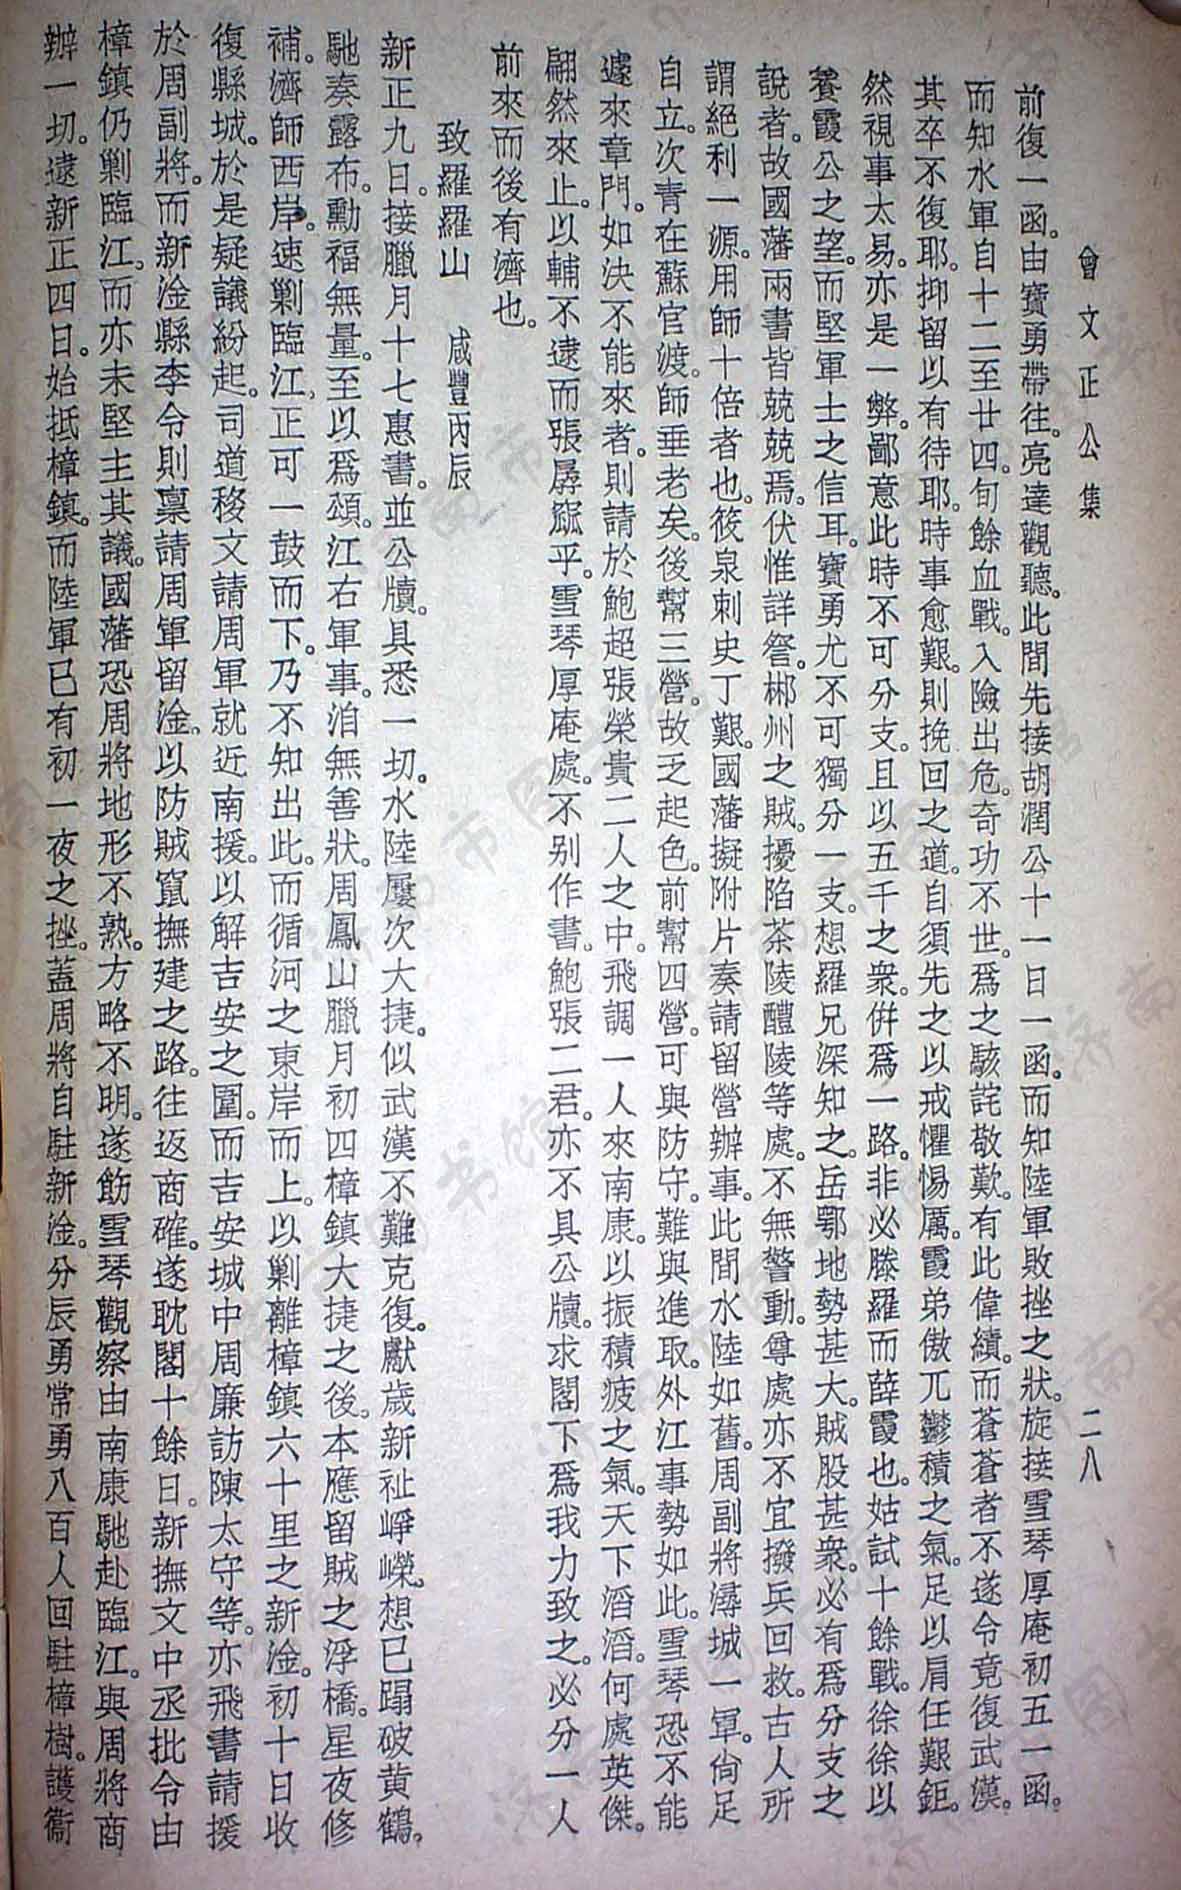 曾文正公集
二八
前復一函。由寶勇帶往。亮達觀聽。此間先接胡潤公十一日一函。而知陸軍敗挫之狀。旋接雪琴厚庵初五一函。
而知水軍自十二至廿四。旬餘血戰。入險出危。奇功不世。爲之駭詫敬歎。有此偉績。而蒼蒼者不遂令竟復武漢。
其卒不復耶。抑留以有待耶。時事愈艱。則挽回之道。自須先之以戒懼惕厲。霞弟傲兀鬱積之氣。足以肩任艱鉅。
然視事太易。亦是一弊。鄙意此時不可分支。且以五千之衆。倂爲一路。非必滕羅而薛霞也。姑試十餘戰。徐徐以
養霞公之望。而堅軍士之信耳。寶勇尤不可獨分一支。想羅兄深知之。岳鄂地勢甚大。賊股甚衆。必有爲分支之
說者。故國藩兩書皆兢兢焉。伏惟詳詧。郴州之賊。擾陷茶陵醴陵等處。不無警動。尊處亦不宜撥兵回救。古人所
謂絕利一源。用師十倍者也。筱泉刺史丁艱。國藩擬附片奏請留營辦事。此間水陸如舊。周副將潯城一軍。尙足
自立。次青在蘇官渡。師垂老矣。後幫三營。故乏起色。前幫四營。可與防守。難與進取。外江事勢如此。雪琴恐不能
遽來章門。如決不能來者。則請於鮑超張榮貴二人之中。飛調一人來南康。以振積疲之氣。天下滔滔。何處英傑。
翩然來止。以輔不逮而張孱竀乎。雪琴厚庵處。不別作書。鮑張二君。亦不具公牘。求閣下爲我力致之。必分一人
前來而後有濟也。
致羅羅山　咸豐丙辰
新正九日。接臘月十七惠書。並公牘。具悉一切。水陸屢次大捷。似武漢不難克復。獻歲新祉崢嶸。想已蹋破黃鶴。
馳奏露布。勳福無量。至以爲頌。江右軍事。洎無善狀。周鳳山臘月初四樟鎮大捷之後。本應留賊之浮橋。星夜修
補。濟師西岸。速剿臨江。正可一鼓而下。乃不知出此。而循河之東岸而上。以剿離樟鎮六十里之新淦。初十日收
復縣城。於是疑議紛起。司道移文請周軍就近南援。以解吉安之圍。而吉安城中周廉訪陳太守等。亦飛書請援
於周副將。而新淦縣李令則稟請周軍留淦。以防賊竄撫建之路。往返商確。遂耽閣十餘日。新撫文中丞批令由
樟鎮仍剿臨江。而亦未堅主其議。國藩恐周將地形不熟。方略不明。遂飭雪琴觀察由南康馳赴臨江。與周將商
辦一切。逮新正四日。始抵樟鎮。而陸軍已有初一夜之挫。蓋周將自駐新淦。分辰勇常勇八百人回駐樟樹。護衞